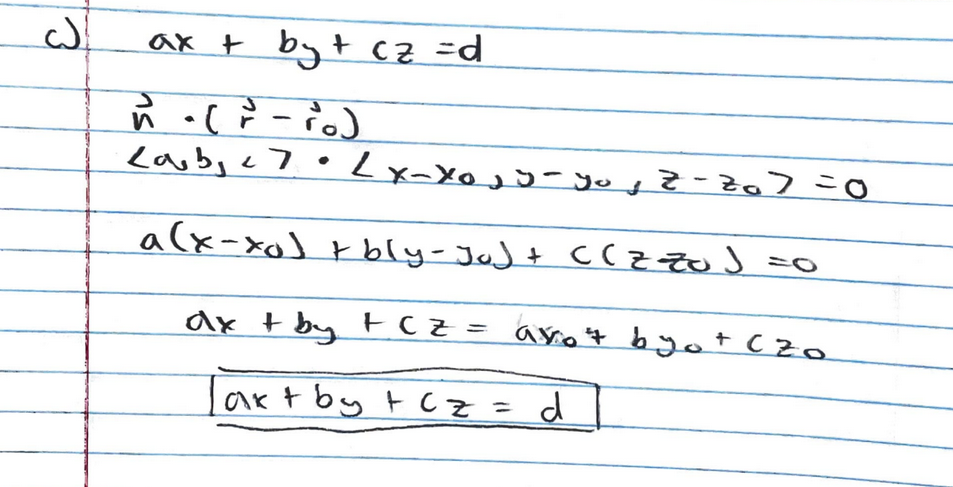 c) ax + by + cz = d
n⃗ · (r⃗ - r⃗₀)
<a, b, c> · <x-x₀, y-y₀, z-z₀> = 0
a(x-x₀) + b(y-y₀) + c(z-z₀) = 0
ax + by + cz = ax₀ + by₀ + cz₀
ax + by + cz = d